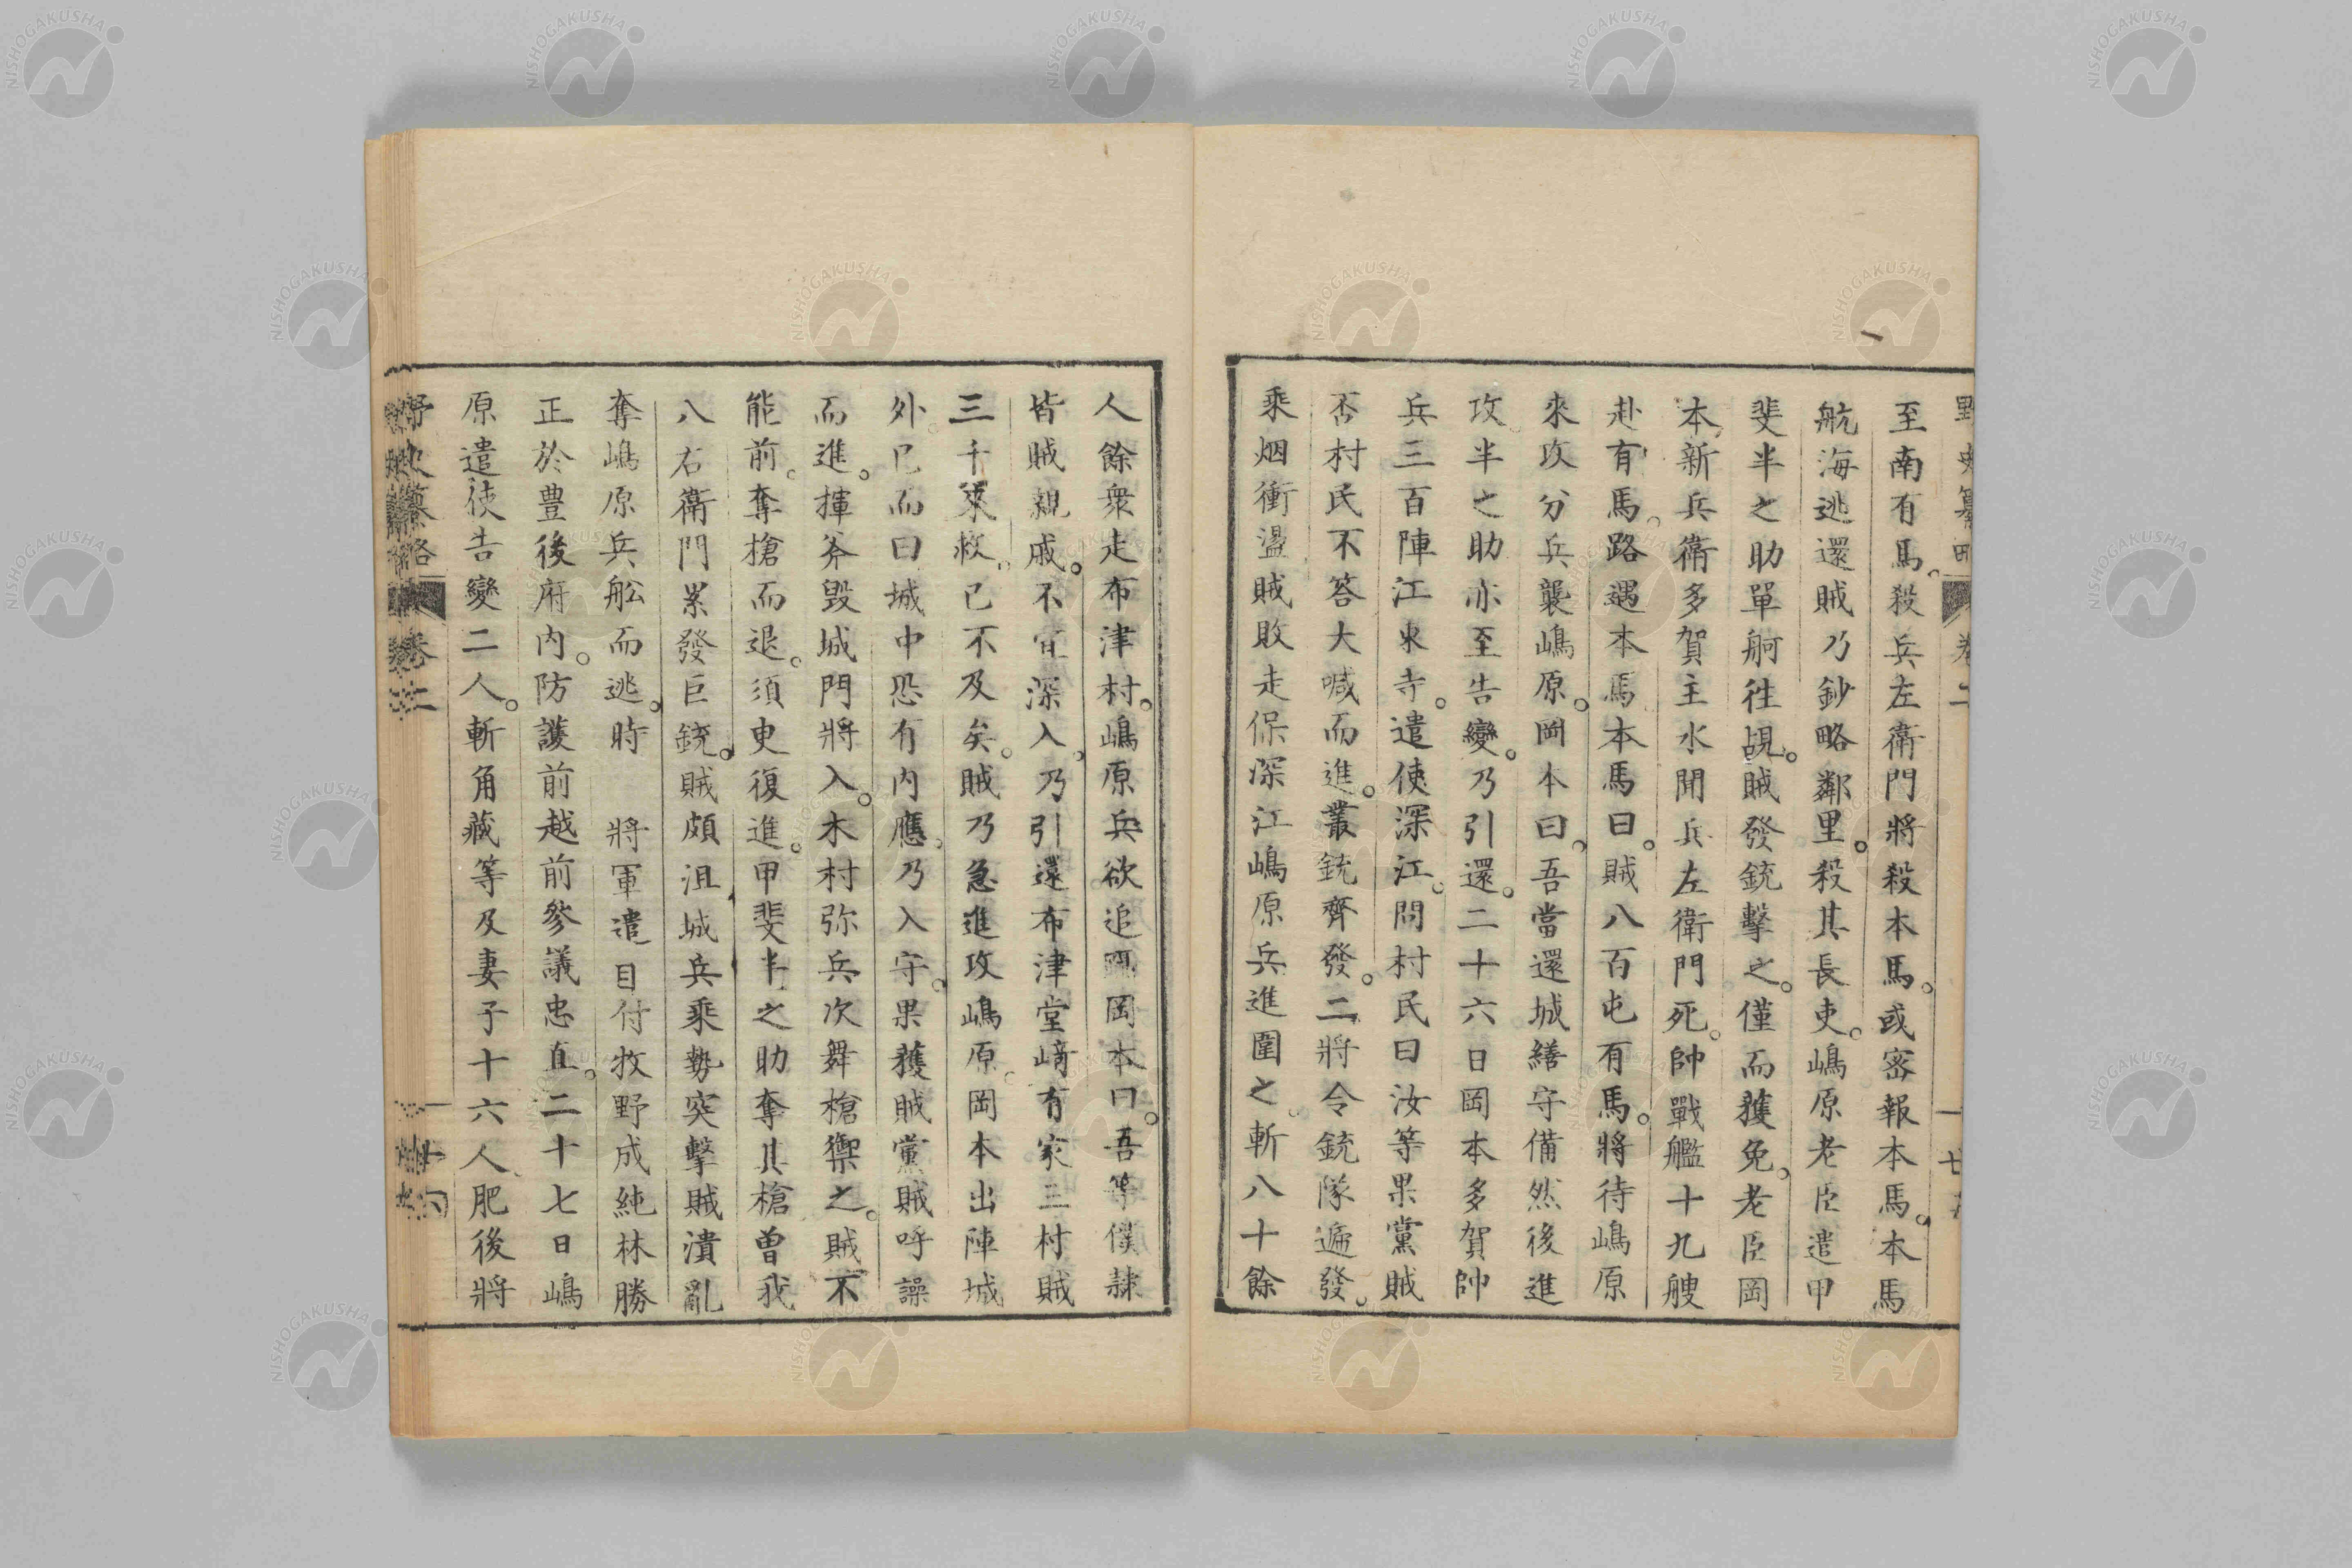 至南有馬。殺兵左衛門將殺本馬。或密報本馬。本馬
航海逃還賊乃鈔略鄰里。殺其長吏。嶋原老臣遣甲
斐半之助單舸往覘。賊發銃擊之。僅而獲免。老臣岡
本新兵衛多賀主水聞兵左衛門死。帥戰艦十九艘
赴有馬。路遇本馬本馬曰。賊八百屯有馬。將待嶋原
來攻分兵襲嶋原。岡本曰。吾當還城繕守備然後進
攻半之助亦至告變。乃引還。二十六日岡本多賀帥
兵三百陣江東寺。遣使深江。問村民曰汝等果黨賊
否村民不答大喊而進。叢銃齊發。二將令銃隊遍發。
乘烟衝盪賊敗走保深江嶋原兵進圍之。斬八十餘
人餘衆走布津村。嶋原兵欲追岡本曰。吾等僕隸
皆賊親戚。不宜深入。乃引還布津堂﨑有家三村賊
三千來救。已不及矣。賊乃急進攻嶋原。岡本出陣城
外。已而曰城中恐有内應。乃入守。果獲賊黨賊呼譟
而進。揮斧毀城門將入。木村弥兵次舞槍禦之。賊不
能前。奪槍而退。須吏復進。甲斐半之助奪其槍曾我
八右衛門累發巨銃。賊頗沮城兵乘勢突擊賊潰亂
奪嶋原兵舩而逃。時 將軍遣目付牧野成純林勝
正於豊後府内。防護前越前參議忠直。二十七日嶋
原遣使告變二人。斬角藏等及妻子十六人肥後將
野史纂略 卷二